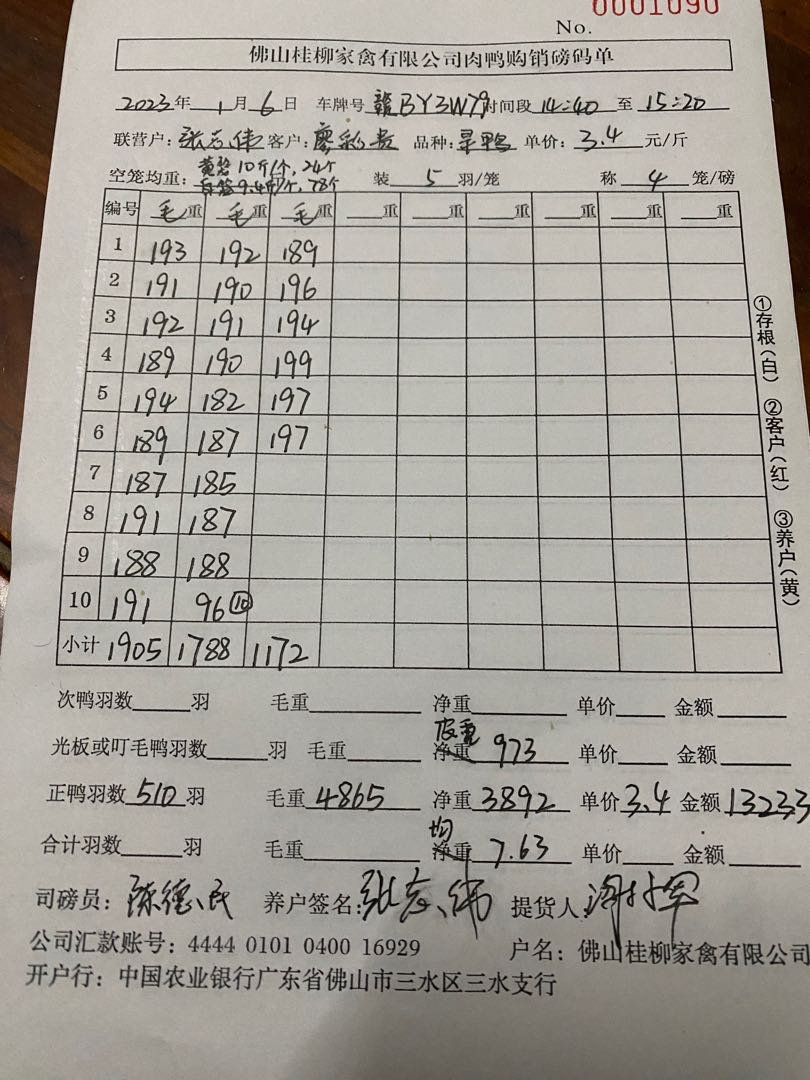 0001090
No.
佛山桂柳家禽有限公司肉鸭购销磅码单
2023年 1月 6日 车牌号 赣BY3W79 时间段 14:40 至 15:20
联营户：张志伟 客户：廖彩贵 品种： 单价：3.4 元/斤
黄笼10斤/个,24个
空笼均重：白笼9.4斤/个,78个 装 5 羽/笼 称 4 笼/磅
编号 毛重 毛重 毛重 重 重 重 重 重 重
1 193 192 189
2 191 190 196
3 192 191 194
4 189 190 199
5 194 182 197
6 189 187 197
7 187 185
8 191 187
9 188 188
10 191 96⑩
小计 1905 1788 1172
①存根(白) ②客户(红) ③养户(黄)
次鸭羽数 羽 毛重 净重 单价 金额
光板或叮毛鸭羽数 羽 毛重 皮重 净重 973 单价 金额
正鸭羽数 510 羽 毛重 4865 净重 3892 单价 3.4 金额 13233
合计羽数 羽 毛重 均 净重 7.63 单价 金额
司磅员：陈德民 养户签名： 提货人：
公司汇款账号：4444 0101 0400 16929 户名：佛山桂柳家禽有限公司
开户行：中国农业银行广东省佛山市三水区三水支行